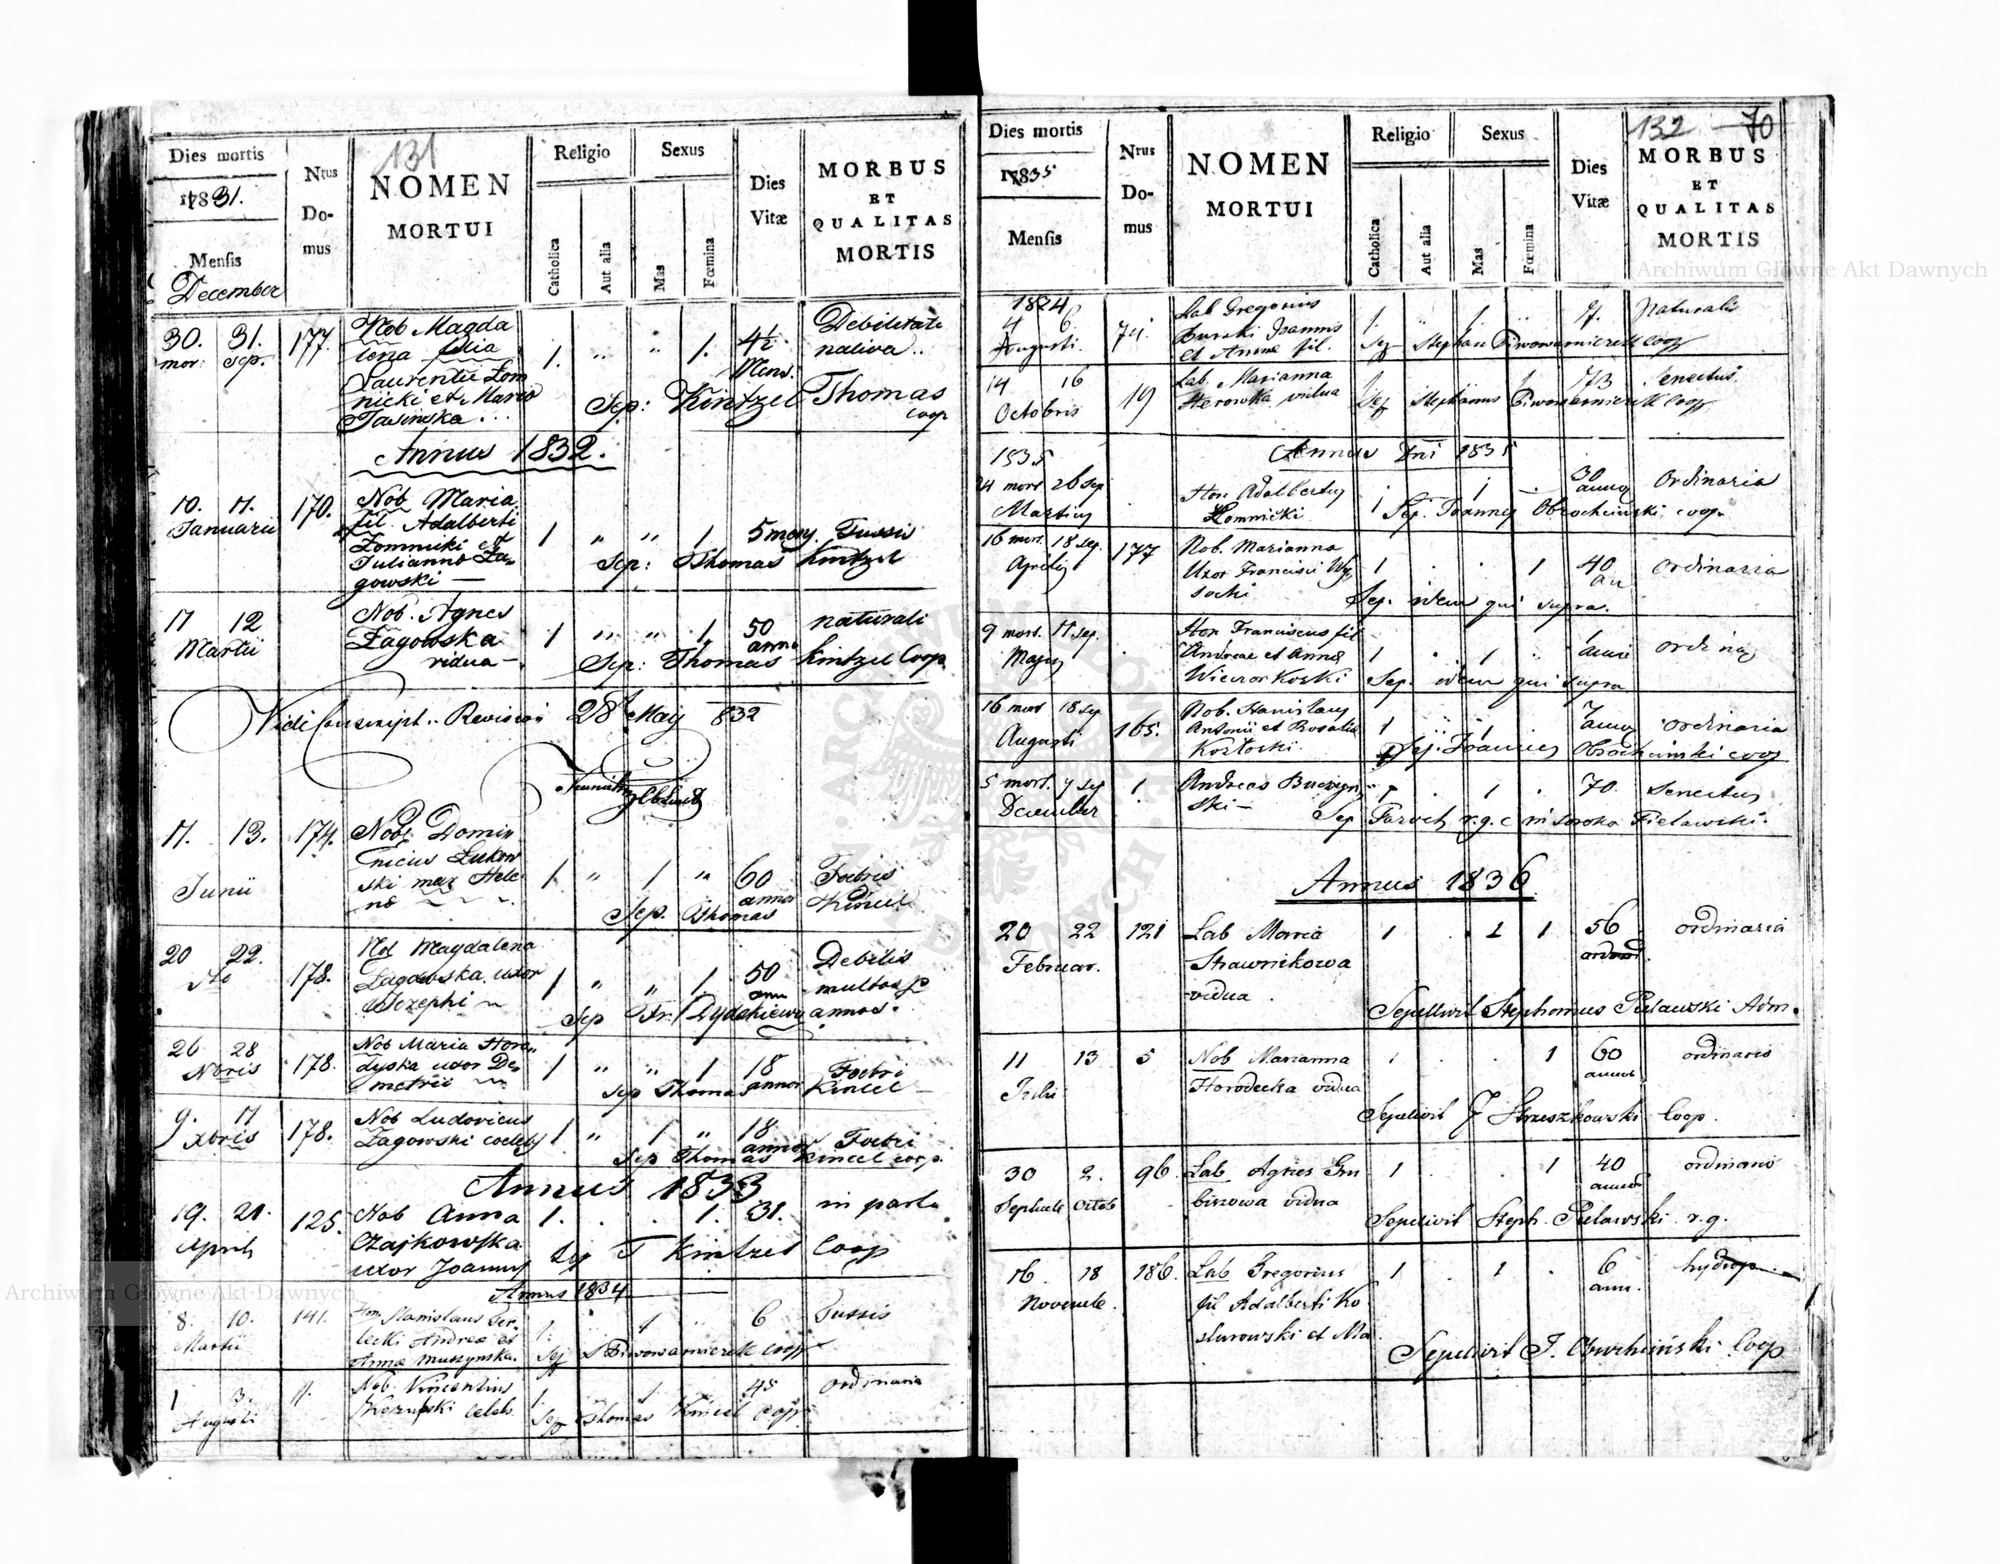 131
Dies mortis
1831.
Mensis
December
Nrus Domus
NOMEN
MORTUI
Religio
Catholica
Aut alia
Sexus
Mas
Fœmina
Dies
Vitæ
MORBUS
ET
QUALITAS
MORTIS
30. 31. 177. Nob Magda 1. " " 1. 4½ Debilitate
mor: sep. lena filia Mens. nativa..
Laurentii Zom
nicki et Maria Sep: Kintzel Thomas
Tasinska... coop
Annus 1832.
10. 11. 170. Nob Maria
Januarii fil. Adalberti
Zomnicki et 1 " " 1 5 mens. Tussis
Julianna Za- Sep: Thomas Kintzel
gowski —
11 12 Nob. Agnes naturali
Martii Zagowska 1 " " 1 50
vidua - anno
Sep: Thomas Kintzel Coop
Vidi Conscript.. Revisioni 28t May 832
11. 13. 174. Nob: Domi
Junii nicus Lukow 1 " 1 " 60 Foebris
ski mar Hele annor Kincel
na Sep. Thomas
20 22. 178. Nob Magdalena Debilis
Zagowska uxor 1 " " 1. 50 multos
Jozephi ann annos.
Sep Fr.
26 28 178. Nob Maria Horo
Nbris dyska uxor De 1 " " 1 18 Foebri
metrii annor
Sep Thomas Kincel
9. 11 178. Nob Ludovicus
Xbris Zagowski coelebs 1 " 1 " 18 Foebri
annor
Sep Thomas Kincel coop.
Annus 1833
19. 21. 125. Nob Anna 1. . . 1. 31. in partu
Aprilis Czajkowska
uxor Joannis Sep T Kintzel Coop
Annus 1834
8. 10. 141. Hon Stanislaus Ter 1. 1 6 Tussis
Martii lecki Andreae et
Annae Muszynska. Sep S Piwowarniczek coop
1 3. 11. Nob. Vincentius 1. 1 45 ordinaria
Augusti celebs. Sep Thomas Kincel Coop.
132 70
Dies mortis
1835
Mensis
Nrus Domus
NOMEN
MORTUI
Religio
Catholica
Aut alia
Sexus
Mas
Fœmina
Dies
Vitæ
MORBUS
ET
QUALITAS
MORTIS
1824
4 6. 74. Lab Gregorius 1. " 1. " 7. Naturalis
Augusti. Burski Joannis
et Annae fil. Sep Stephan Piwowarniczek coop
14 16 19 Lab. Marianna 1 1 73 Senectus.
Octobris vidua Sep Stephanus Piwowarniczek Coop
1835 Annus Dni 1835
24 mort 26 sep Hon Adalbertus 1 . 1 30 ordinaria
Martius Zomnicki annos
Sep. Joannes Obrochcinski coop.
16 mort. 18 sep. 177 Nob. Marianna
Aprilis Uxor Francisci Wy 1 . . 1 40 ordinaria
socki an
Sep. idem qui supra.
9 mort. 11 sep. Hon Franciscus fil
Majus Andreae et Annae 1 . 1 " 1
Wieczorkoski Sep. idem qui supra
16 mort 18 sep 165. Nob. Stanislaus 1 " 1 7 ordinaria
Augusti Antonii et Rosalia annos
Kozloski. Sep. Joannes Obrochcinski coop
5 mort. 7 sep 1 Andreas Buczyn 1 . 1 . 70. Senectus
December ski —
Sep Paroch r.g.c in Soroka Pielawski.
Annus 1836.
20 22 121 Lab Maria 1 . 1 1 56 ordinaria
Februar. Strawnikowa
vidua.
Sepelivit Stephanus Pielawski Adm.
11 13 5 Nob Marianna 1 . . 1 60 ordinaria
Julii Horodecka vidua annor
Sepelivit J Strzeszkowski Coop.
30 2. 96. Lab Agnes Gru 1 . . 1 40 ordinario
Septemb Octob biszowa vidua annor
Sepelivit Steph. Pielawski r.g.
16 18 186. Lab Gregorius 1 . 1 . 6 hydrop.
Novemb. fil Adalberti Ko ann.
slurowski et Ma.
Sepelivit J. Obrochcinski Coop
Archiwum Główne Akt Dawnych
Archiwum Główne Akt Dawnych